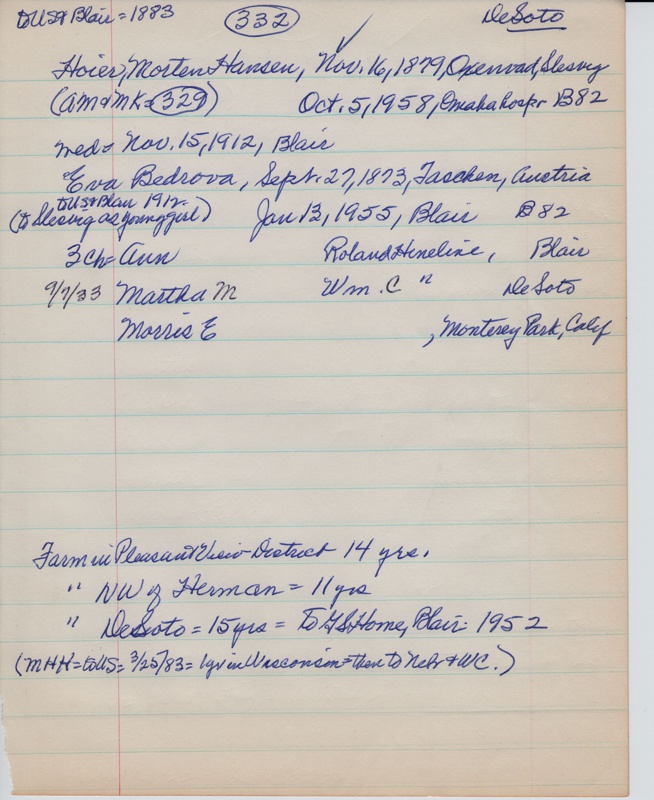 to US & Blair = 1883 332 DeSoto
Hoier, Morten Hansen, Nov. 16, 1879, Openvad, Slesvig
(AM & MK = 329) Oct. 5, 1958, Omaha hosp. B82
wed = Nov. 15, 1912, Blair
Eva Bedrova, Sept. 27, 1873, Taschen, Austria
to US & Blair 1912
(to Slesvig as young girl) Jan 13, 1955, Blair B82
3 ch = Ann Roland Hineline, Blair
9/7/33 Martha M Wm. C " DeSoto
Morris E , Monterey Park, Calif
Farm in Pleasant View District 14 yrs.
" NW of Herman = 11 yrs
" DeSoto = 15 yrs = To GS Home, Blair = 1952
(MHH = to US = 3/25/83 = 1 yr in Wisconsin = then to Nebr & WC.)